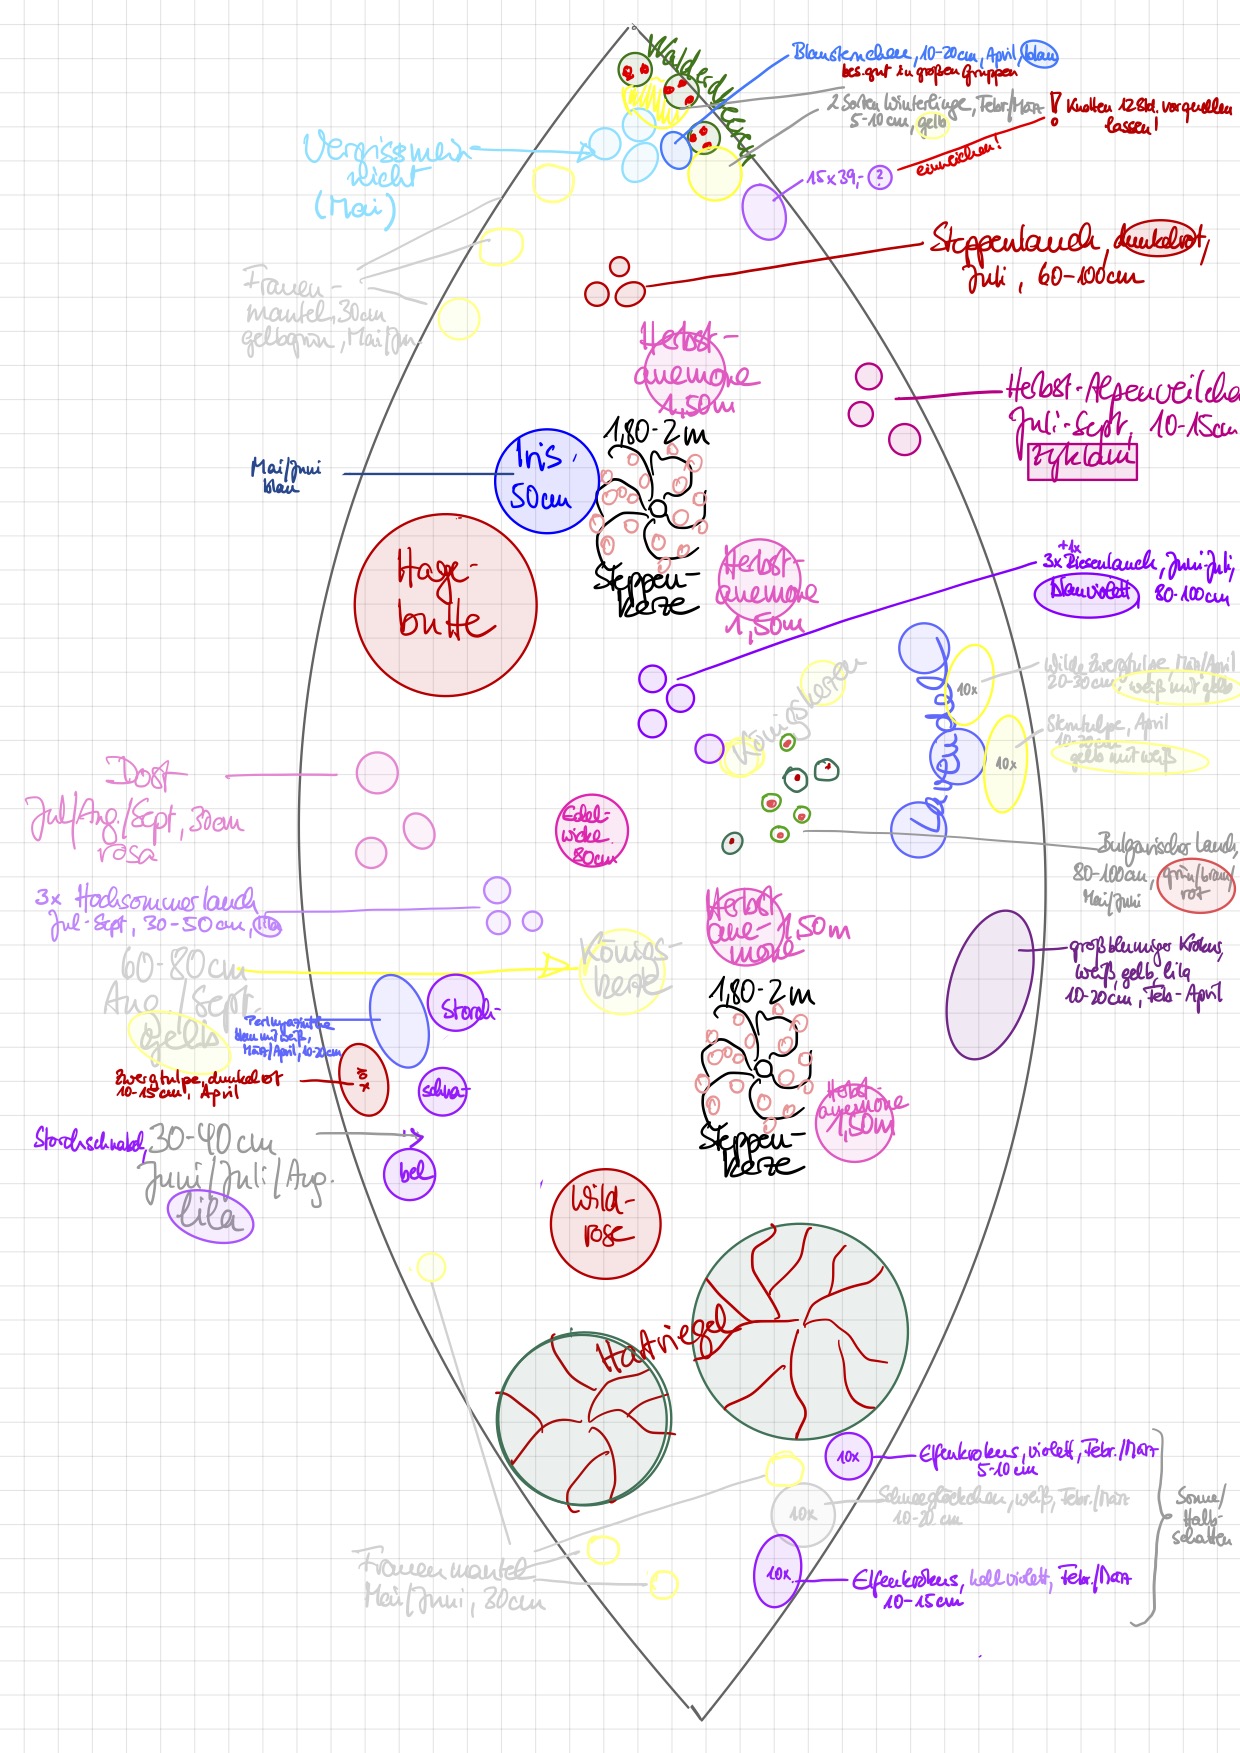 Walderdbeere
Blausternchen, 10-20cm, April, blau
bes. gut in großen Gruppen
2 Sorten Winterlinge, Febr/März
5-10cm, gelb
! Knollen 12 Std. vorquellen
lassen!
einweichen!
15x39,- ?
Vergissmein
nicht
(Mai)
Steppenlauch, dunkelrot,
Juli, 60-100cm
Frauen-
mantel, 30cm
gelbgrün, Mai/Jun
Herbst-
anemone
1,50m
Herbst-Alpenveilche
Juli-Sept, 10-15cm
Zyklam
1,80-2m
Iris
50cm
Mai/Juni
blau
Steppen-
kerze
Hage-
butte
Herbst-
anemone
1,50m
+1x
3x Riesenlauch, Juni-Juli,
blauviolett, 80-100cm
Königskerzen
Lavendel
10x
Wilde Zwergtulpe, März/April
20-30cm, weiß mit gelb
10x
Sterntulpe, April
10-20cm
gelb mit weiß
Dost
Jul/Aug./Sept, 30cm
rosa
Edel-
wicke
80cm
Bulgarischer Lauch,
80-100cm, grün/braun/
rot
Mai/Juni
3x Hochsommerlauch
Jul-Sept, 30-50cm, lila
Herbst
ane- 1,50m
mone
Königs-
kerze
60-80cm
Aug./Sept.
gelb
großblumiger Krokus,
weiß, gelb, lila
10-20cm, Feb-April
1,80-2m
Perlhyazinthe
blau mit weiß,
März/April, 10-20cm
Storch-
schna-
bel
Zwergtulpe, dunkelrot
10-15cm, April
10x
Herbst-
anemone
1,50m
Steppen-
kerze
Storchschnabel, 30-40cm
Juni/Juli/Aug.
lila
Wild-
rose
Hartriegel
10x
Elfenkrokus, violett, Febr./März
5-10cm
10x
Schneeglöckchen, weiß, Febr./März
10-20cm
Sonne/
Halb-
schatten
Frauenmantel
Mai/Juni, 30cm
10x
Elfenkrokus, hellviolett, Febr./März
10-15cm